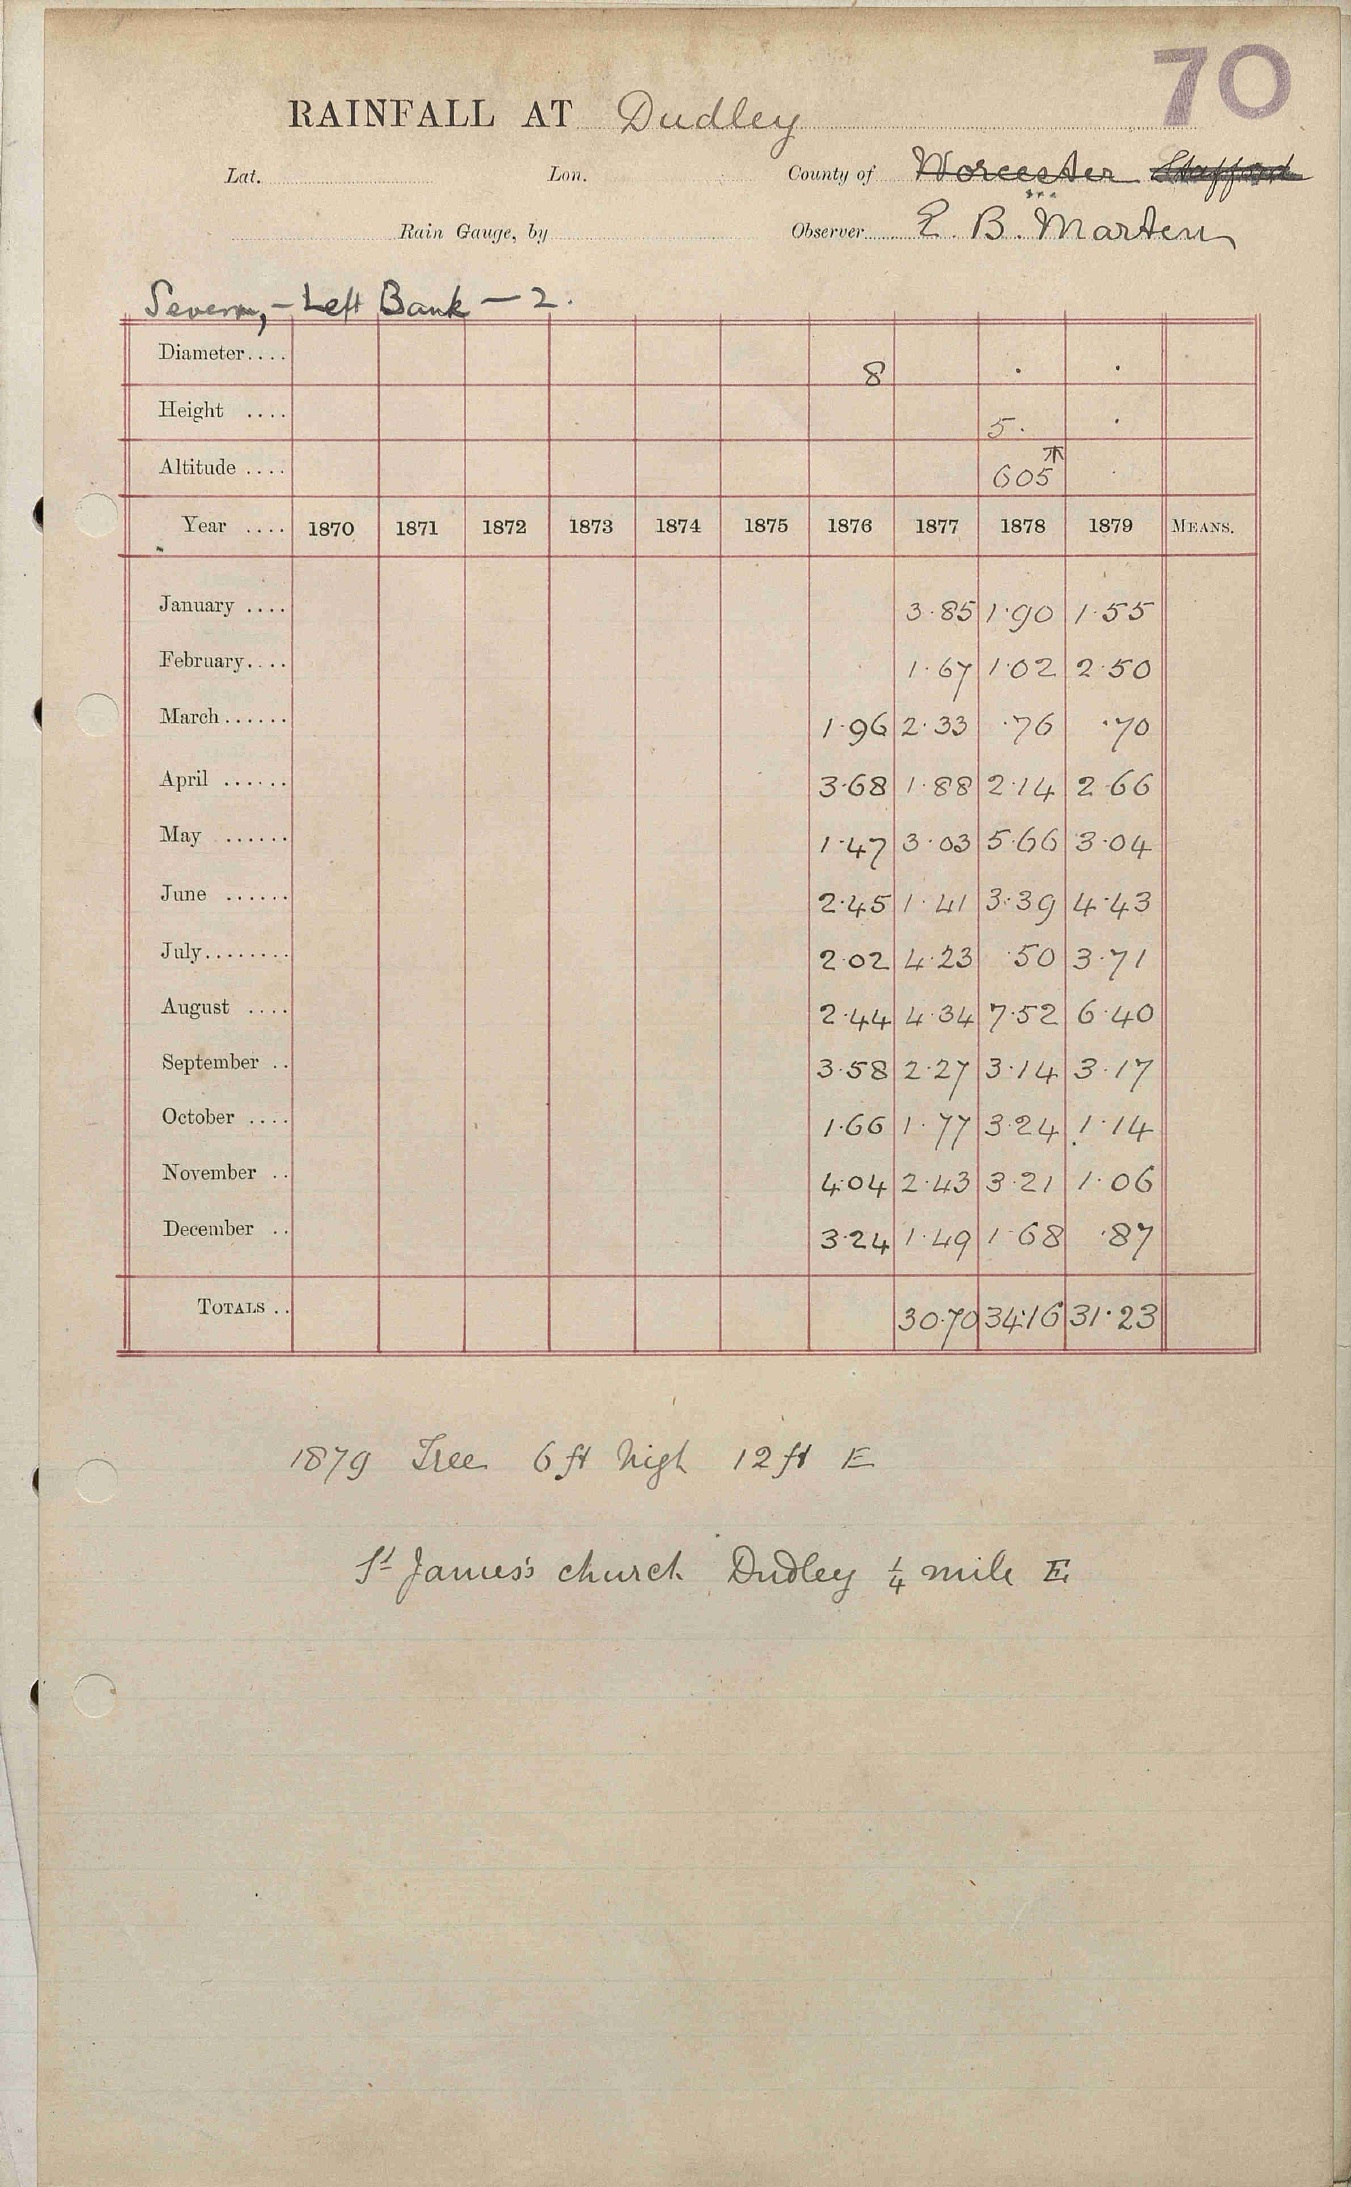 70
RAINFALL AT Dudley
Lat. Lon. County of Worcester Stafford
Rain Gauge, by Observer E. B. Marten
Severn, - Left Bank - 2.
Diameter.... 8 . .
Height .... 5. .
Altitude .... 605
Year .... 1870 1871 1872 1873 1874 1875 1876 1877 1878 1879 MEANS.
January .... 3.85 1.90 1.55
February.... 1.67 1.02 2.50
March...... 1.96 2.33 .76 .70
April ...... 3.68 1.88 2.14 2.66
May ...... 1.47 3.03 5.66 3.04
June ...... 2.45 1.41 3.39 4.43
July........ 2.02 4.23 .50 3.71
August .... 2.44 4.34 7.52 6.40
September .. 3.58 2.27 3.14 3.17
October .... 1.66 1.77 3.24 1.14
November .. 4.04 2.43 3.21 1.06
December .. 3.24 1.49 1.68 .87
TOTALS .. 30.70 34.16 31.23
1879 Tree 6 ft high 12 ft E
St James's church Dudley 1/4 mile E